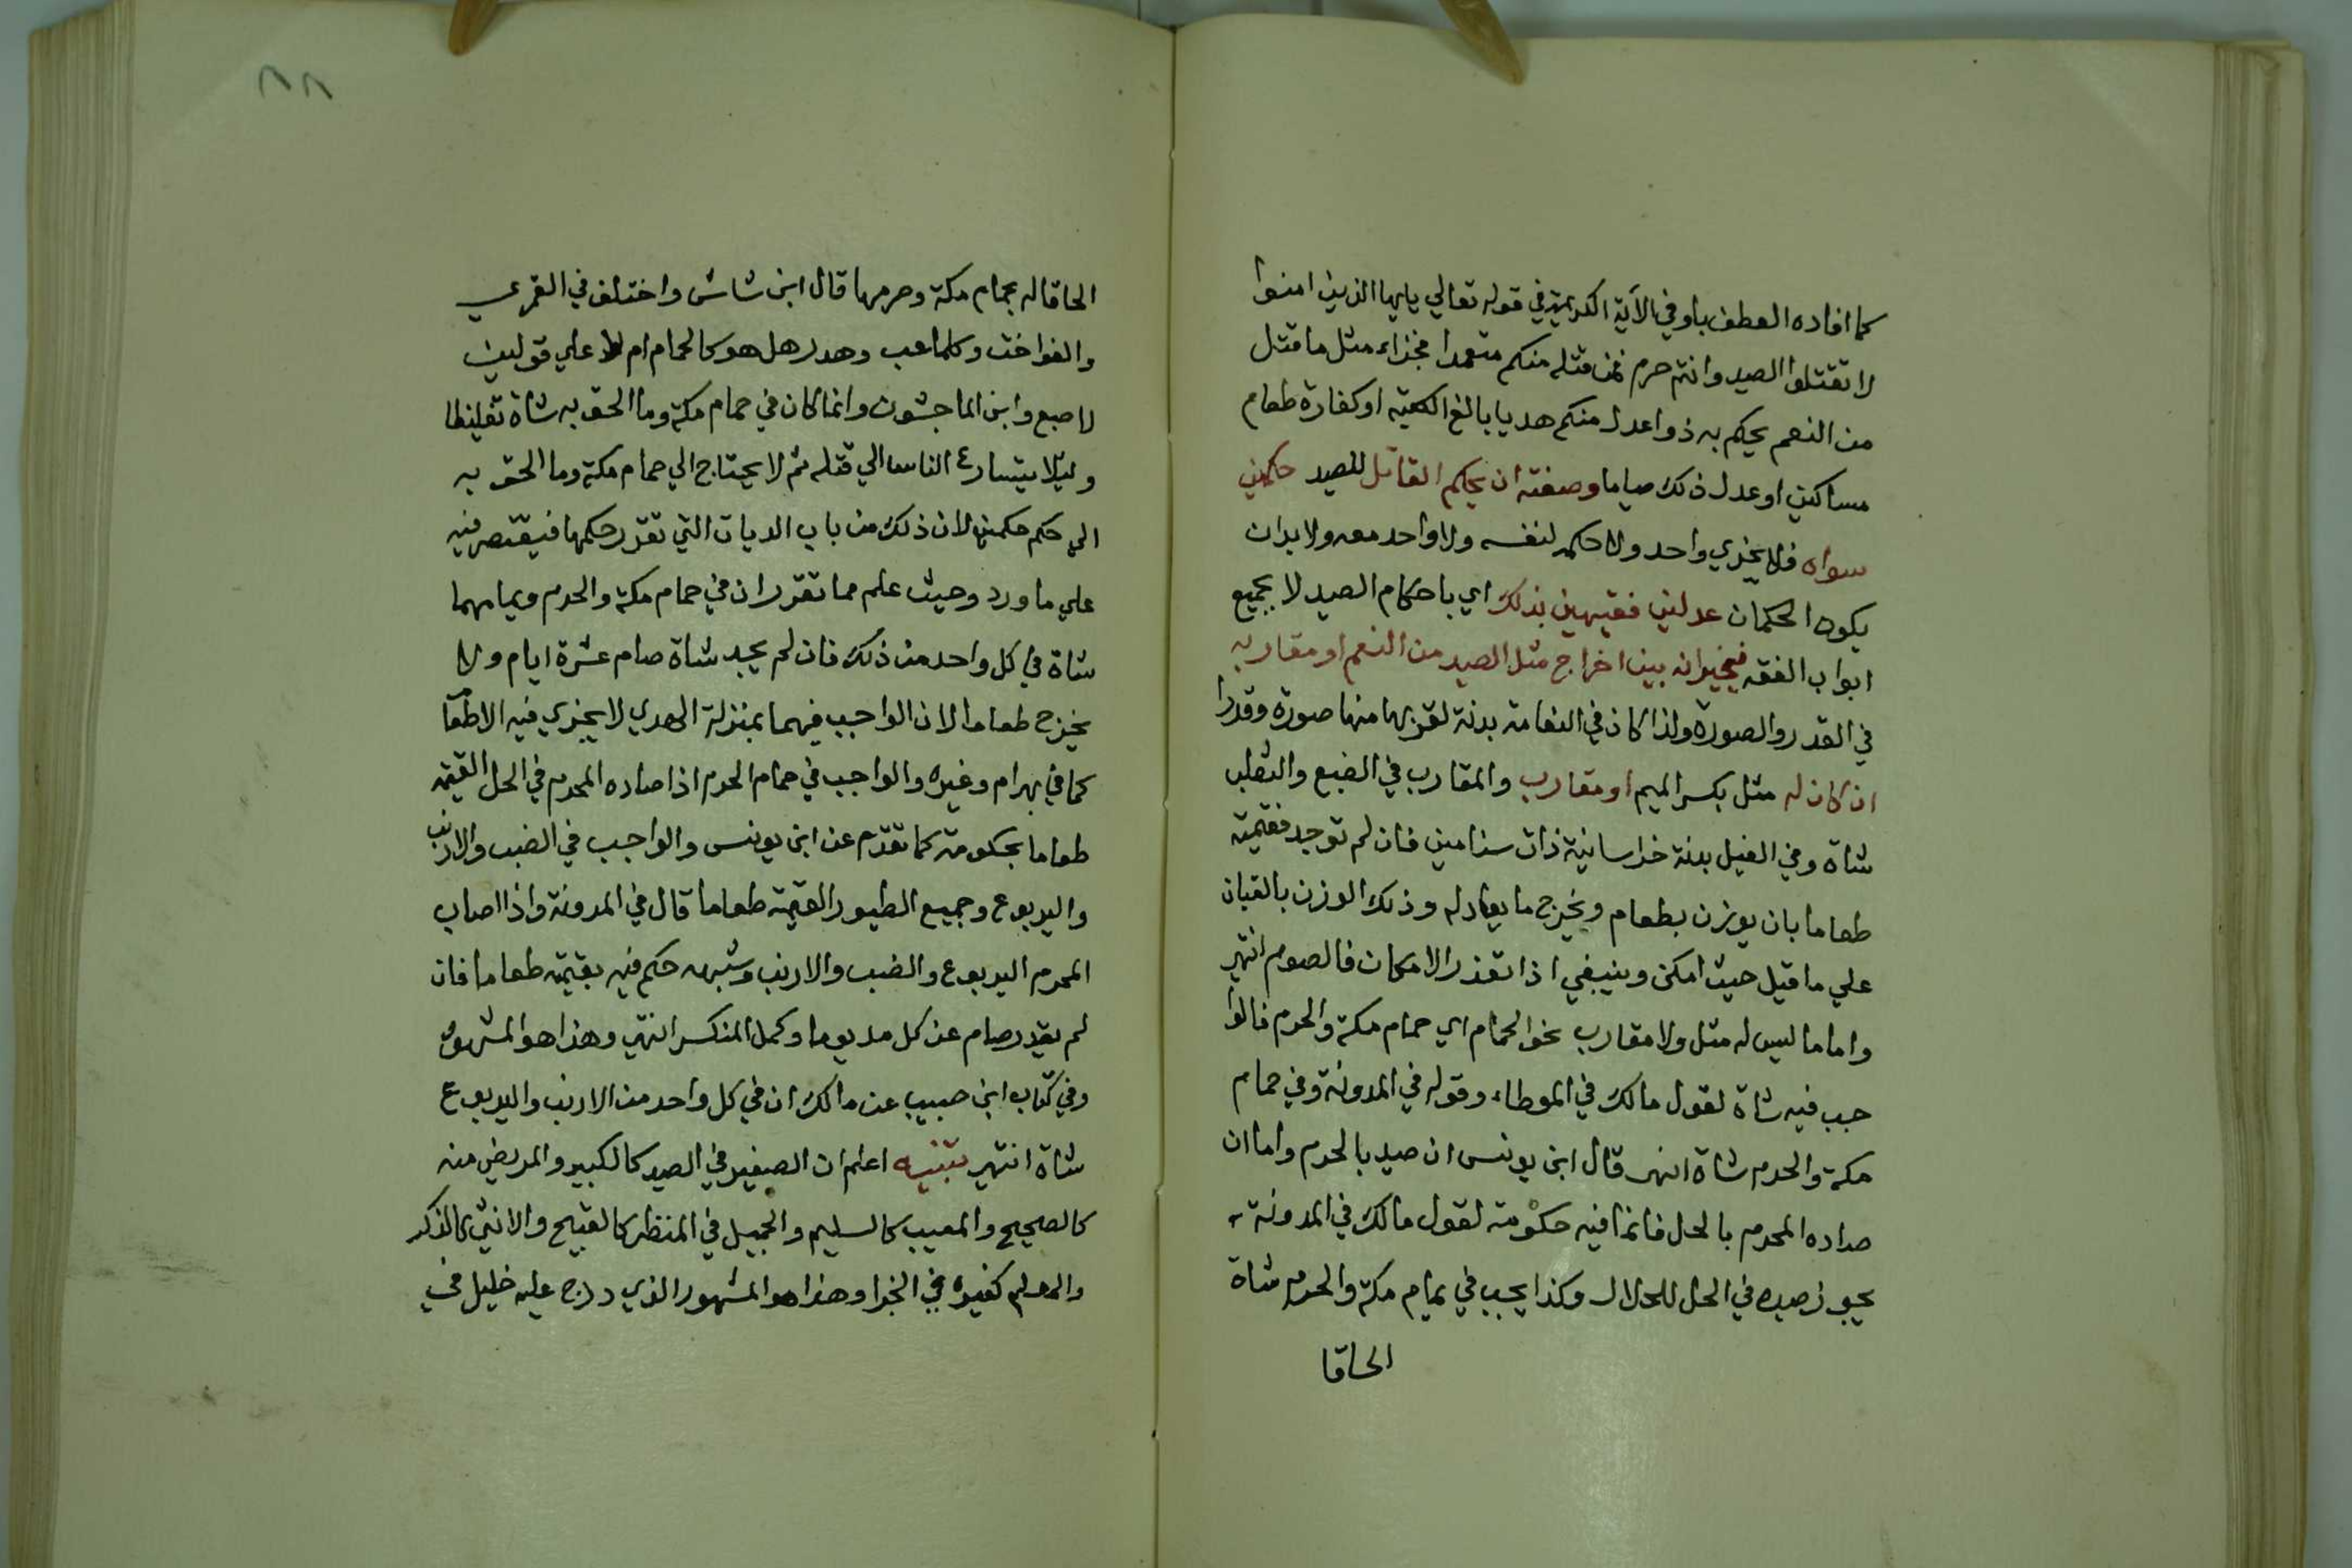 كما افاده العطف باو في الآية الكريمة في قوله تعالي يايها الذين امنوا
لا تقتلوا الصيد وانتم حرم فمن قتله منكم متعمدا فجزاء مثل ما قتل
من النعم يحكم به ذوا عدل منكم هديا بالغ الكعبة او كفارة طعام
مساكين او عدل ذلك صياما وصفته ان يحكم القاتل للصيد حكمين
سواه فلا يجزي واحد ولا حكمه لنفسه ولا واحد معه ولا بد ان
يكون الحكمان عدلين فقيهين بذلك اي باحكام الصيد لا بجميع
ابواب الفقه فيخيرانه بين اخراج مثل الصيد من النعم او مقاربه
في القدر والصورة ولذا كان في النعامة بدنة لقربها منها صورة وقدرا
ان كان له مثل بكسر الميم او مقارب والمقارب في الضبع والثعلب
شاة وفي الفيل بدنة خراسانية ذات سنامين فان لم توجد فقيمته
طعاما بان يوزن بطعام ويخرج ما يعادله وذلك الوزن بالقبان
علي ما قيل حيث امكن وينبغي اذا تعذر الامكان فالصوم انتهي
واما ما ليس له مثل ولا مقارب نحو الحمام اي حمام مكة والحرم فالوا
جب فيه شاة لقول مالك في الموطاء وقوله في المدونة وفي حمام
مكة والحرم شاة انتهى قال ابن يونس ان صيد بالحرم واما ان
صاده المحرم بالحل فانما فيه حكومة لقول مالك في المدونة
يجوز صيده في الحل للحلال وكذا يجب في يمام مكة والحرم شاة
الحاقا
٨٨
الحاقا له بحمام مكة وحرمها قال ابن شاش واختلف في القمري
والفواخت وكلما عب وهدر هل هو كالحمام ام لا علي قولين
لاصبع وابن الماجشون وانما كان في حمام مكة وما الحق به شاة تغليظا
وليلا يتسارع الناس الي قتله ثم لا يحتاج الي حمام مكة وما الحق به
الي حكم حكمين لان ذلك من باب الديات التي تقرر حكمها فيقتصر فيه
علي ما ورد وحيث علم مما تقرر ان في حمام مكة والحرم ويمامهما
شاة في كل واحد من ذلك فان لم يجد شاة صام عشرة ايام ولا
يخرج طعاما لان الواجب فيهما بمنزلة الهدي لا يجزي فيه الاطعا
كما في بهرام وغيره والواجب في حمام الحرم اذا صاده المحرم في الحل القيمة
طعاما بحكومة كما تقدم عن ابن يونس والواجب في الضب والارنب
واليربوع وجميع الطيور القيمة طعاما قال في المدونة واذا اصاب
المحرم اليربوع والضب والارنب وشبهه حكم فيه بقيمته طعاما فان
لم يقدر صام عن كل مد يوما وكمل المنكسر انتهي وهذا هو المشهور
وفي كتاب ابن حبيب عن مالك ان في كل واحد من الارنب واليربوع
شاة انتهي تنبيه اعلم ان الصغير في الصيد كالكبير والمريض منه
كالصحيح والمعيب كالسليم والجميل في المنظر كالقبيح والانثي كالذكر
والمعلم كغيره في الجزا وهذا هو المشهور الذي درج عليه خليل في